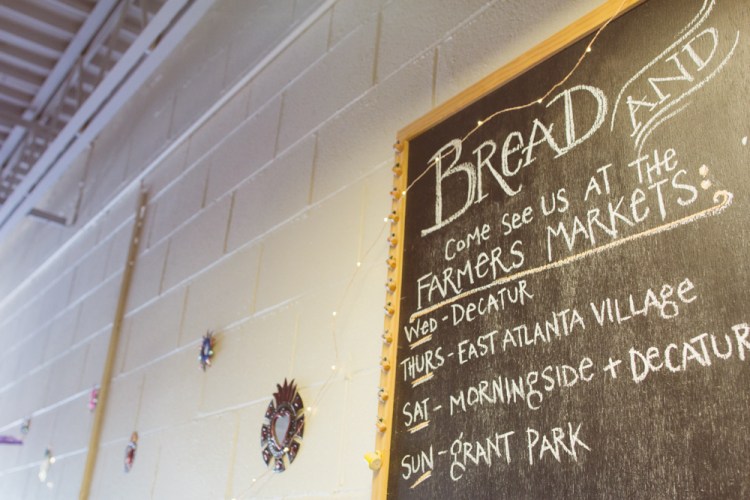 BREAD AND
COME SEE US AT THE
FARMERS MARKETS:
WED - DECATUR
THURS - EAST ATLANTA VILLAGE
SAT - MORNINGSIDE + DECATUR
SUN - GRANT PARK